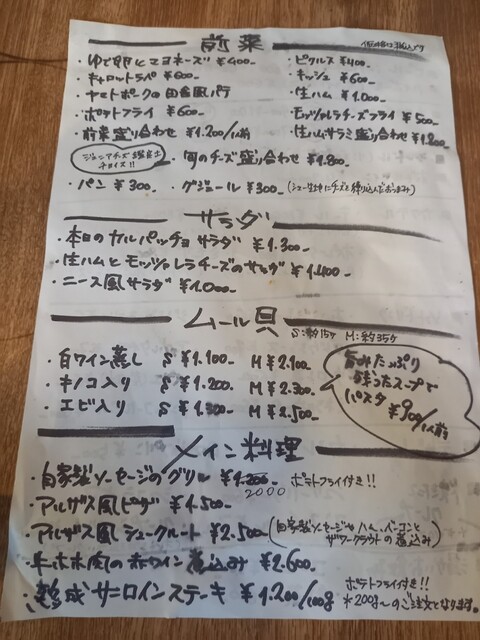 前菜
価格は税込です
・ゆで卵とマヨネーズ ¥400-
・ピクルス ¥400-
・キャロットラペ ¥600-
・キッシュ ¥600-
・ヤマトポークの田舎風パテ
・生ハム ¥1.000-
・ポテトフライ ¥600-
・モッツァレラチーズフライ ¥500-
・前菜盛り合わせ ¥1.200/1人前
・生ハムサラミ盛り合わせ ¥1.800-
ジュニアチーズ鑑定士
チョイス!!
・旬のチーズ盛り合わせ ¥1.800-
・パン ¥300-
・グジェール ¥300- (シュー生地にチーズを練り込んだおつまみ)
サラダ
・本日のカルパッチョサラダ ¥1.300-
・生ハムとモッツァレラチーズのサラダ ¥1.400-
・ニース風サラダ ¥1.000-
ムール貝
S:約15ケ M:約35ケ
・白ワイン蒸し S ¥1.100- M ¥2.100-
・キノコ入り S ¥1.200- M ¥2.300-
・エビ入り S ¥1.300- M ¥2.500-
旨みたっぷり
残ったスープで
パスタ
¥900/1人前
メイン料理
・自家製ソーセージのグリル 2000 ポテトフライ付き!!
・アルザス風ピザ ¥1.500-
・アルザス風シュークルート ¥2.500- (自家製ソーセージやハム、ベーコンと
ザワークラウトの煮込み)
・牛ホホ肉の赤ワイン煮込み ¥2.600-
・熟成サーロインステーキ ¥1.200/100g
ポテトフライ付き!!
*200g〜のご注文となります。